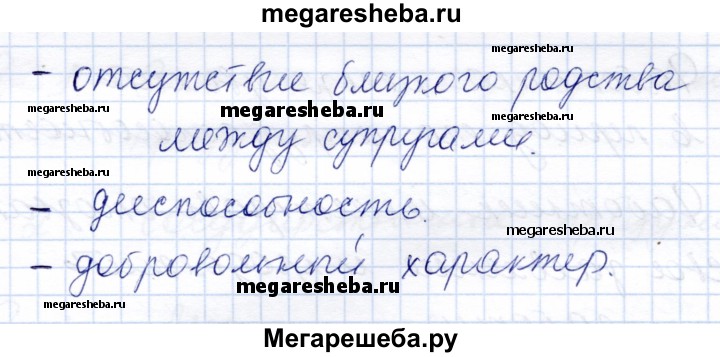 megaresheba.ru
megaresheba.ru
- отсутствие близкого родства
megaresheba.ru
megaresheba.ru
между супругами.
megaresheba.ru
- дееспособность.
megaresheba.ru
- добровольный характер.
megaresheba.ru
megaresheba.ru
megaresheba.ru
Мегарешеба.ру